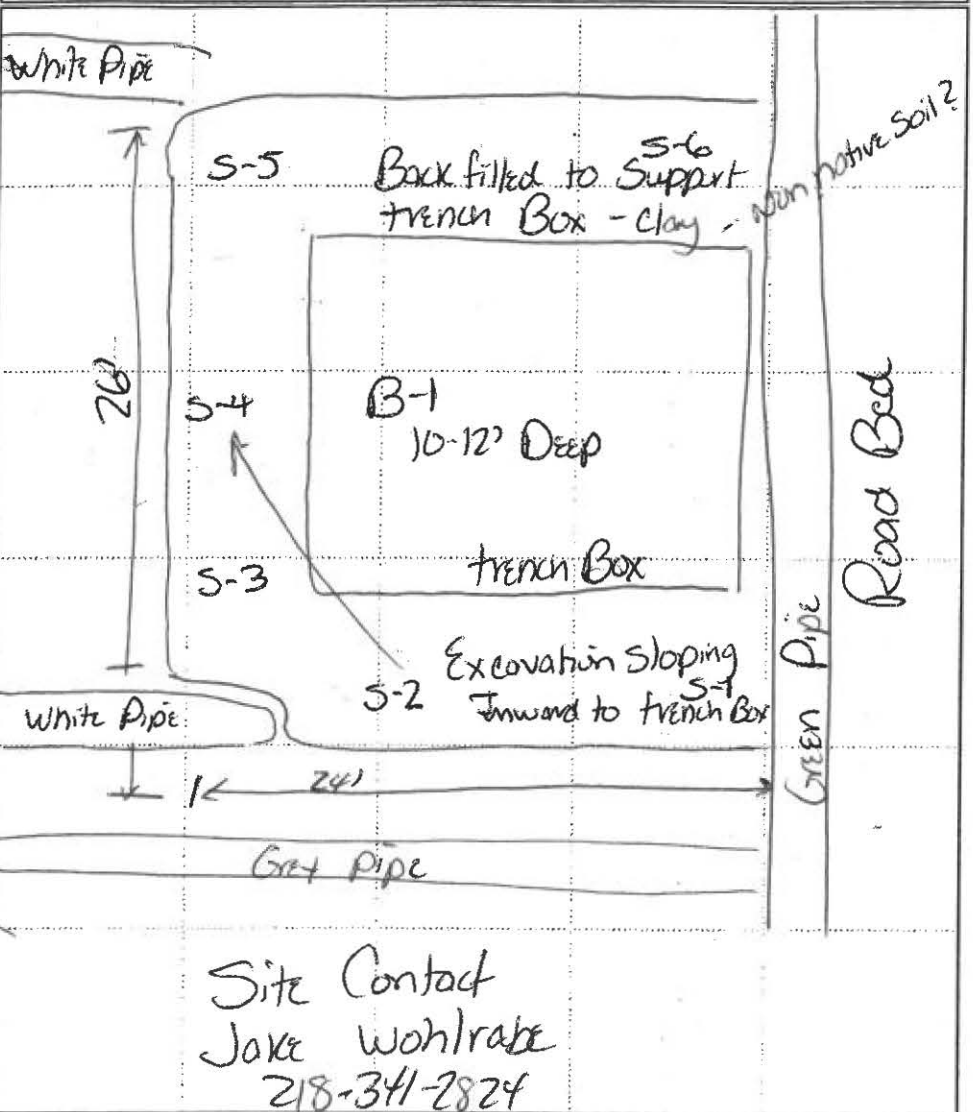 White Pipe
S-5
S-6
Back filled to Support
trench Box - Clay - Non native Soil?
26'
S-4
B-1
10-12' Deep
Road Bed
S-3
trench Box
Excavation Sloping
S-2
S-1
Inward to trench Box
White Pipe
Green Pipe
24'
Grey Pipe
Site Contact
Jake Wohlrabe
218-341-2824